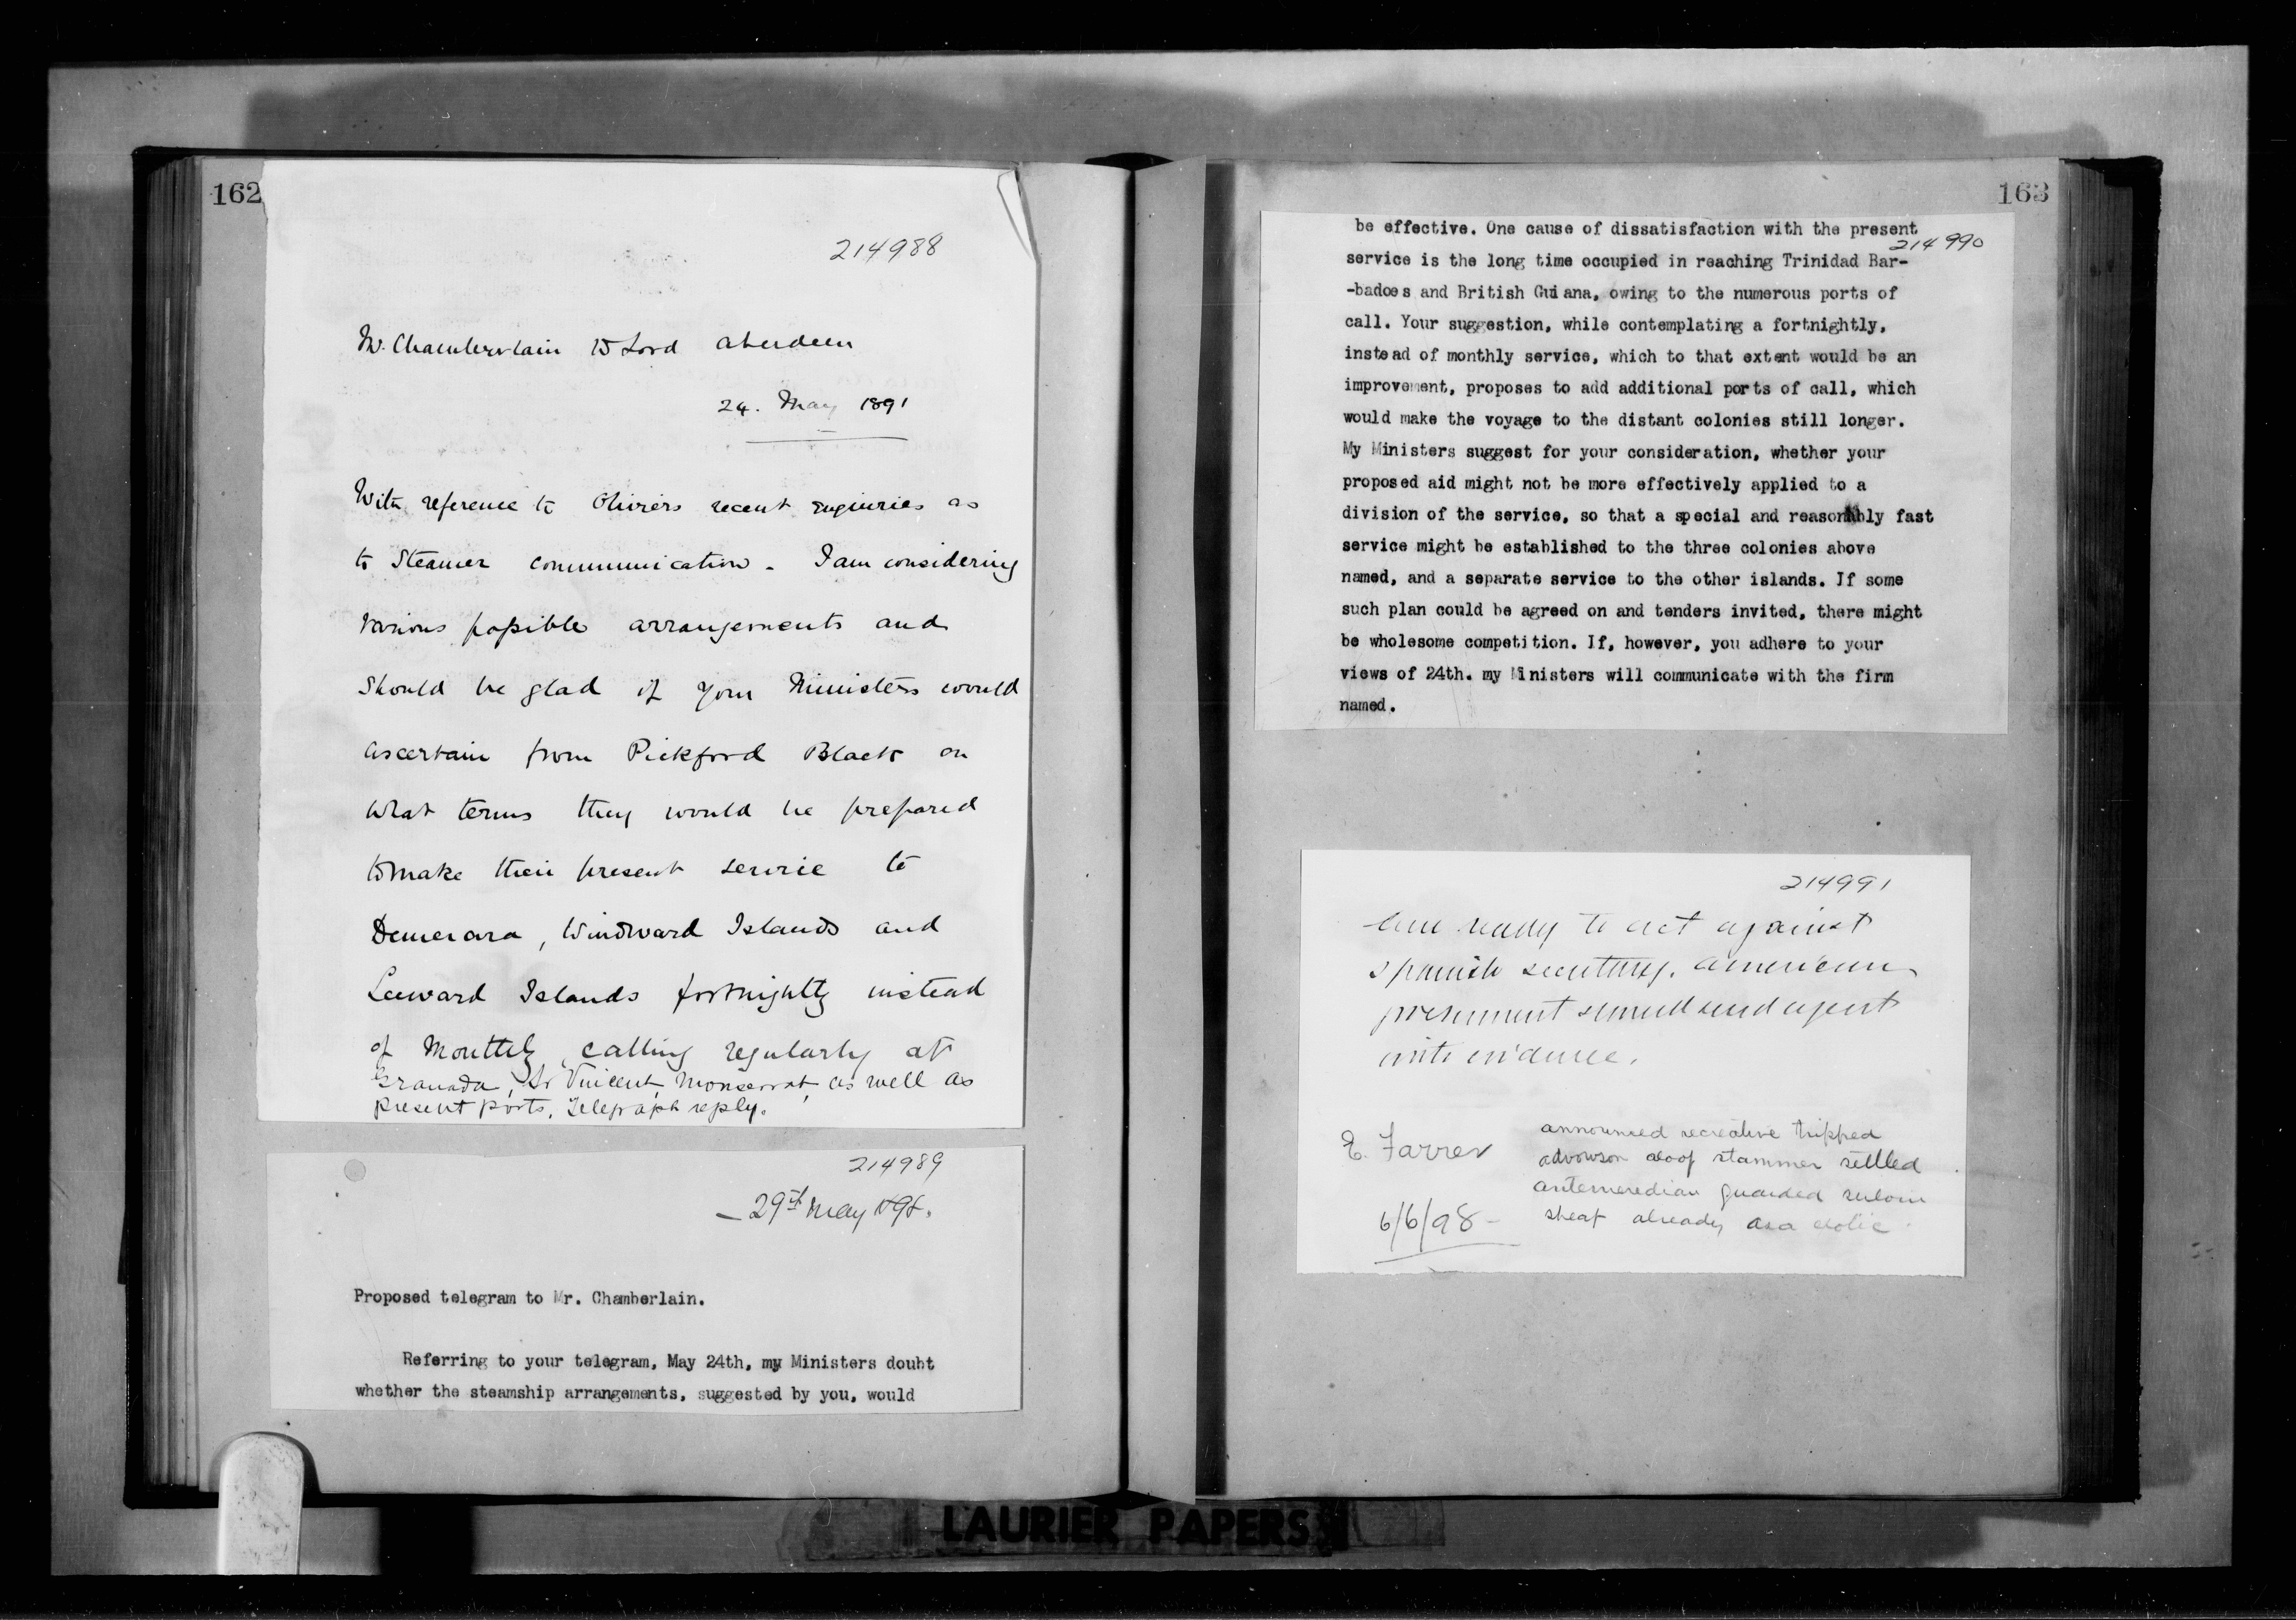 162
214988
Mr. Chamberlain to Lord Aberdeen
24. May 1891
With reference to Oliviers recent enquiries as
to Steamer communication. I am considering
various possible arrangements and
should be glad if your Ministers would
ascertain from Pickford Black on
what terms they would be prepared
to make their present service to
Demerara, Windward Islands and
Leeward Islands fortnightly instead
of Monthly, calling regularly at
Granada, St Vincent, Monserrat, as well as
present ports. Telegraph reply.
214989
29th May 1898.
Proposed telegram to Mr. Chamberlain.
Referring to your telegram, May 24th, my Ministers doubt
whether the steamship arrangements, suggested by you, would
163
be effective. One cause of dissatisfaction with the present
214990
service is the long time occupied in reaching Trinidad Bar-
-badoes and British Guiana, owing to the numerous ports of
call. Your suggestion, while contemplating a fortnightly,
instead of monthly service, which to that extent would be an
improvement, proposes to add additional ports of call, which
would make the voyage to the distant colonies still longer.
My Ministers suggest for your consideration, whether your
proposed aid might not be more effectively applied to a
division of the service, so that a special and reasonably fast
service might be established to the three colonies above
named, and a separate service to the other islands. If some
such plan could be agreed on and tenders invited, there might
be wholesome competition. If, however, you adhere to your
views of 24th. my Ministers will communicate with the firm
named.
214991
Am ready to act against
Spanish secretary. American
government should send agent
with evidence.
E. Farrer
6/6/98
announced recreative tripped
advowson aloof stammer settled
antemeredian guarded
sheaf already
LAURIER PAPERS